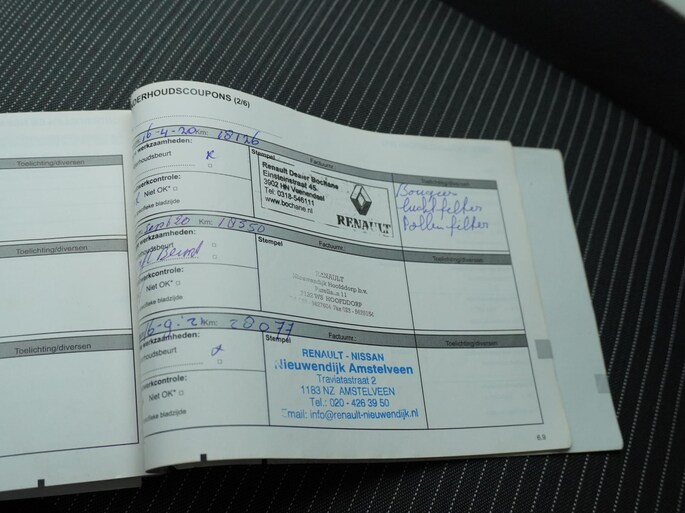 DERHOUDSCOUPONS (2/6)
Toelichting/diversen
Toelichting/diversen
Toelichting/diversen
16-4-20 Km: 18126
werkzaamheden:
houdsbeurt x
werkcontrole:
Niet OK*
fieke bladzijde
Stempel Factuurnr.:
Renault Dealer Bochane
Einsteinstraat 45.
3902 HN Veenendaal
Tel: 0318-546111
www.bochane.nl
RENAULT
Bougien
luchtfilter
Pollenfilter
Sept 20 Km: 18350
werkzaamheden:
houdsbeurt
werkcontrole:
Niet OK*
fieke bladzijde
Stempel Factuurnr.: Toelichting/diversen
RENAULT
Nieuwendijk Hoofddorp b.v.
HOOFDDORP
16-9-21 Km: 20077
werkzaamheden:
houdsbeurt
werkcontrole:
Niet OK*
fieke bladzijde
Stempel Factuurnr.: Toelichting/diversen
RENAULT - NISSAN
Nieuwendijk Amstelveen
Traviatastraat 2
1183 NZ AMSTELVEEN
Tel.: 020 - 426 39 50
Email: info@renault-nieuwendijk.nl
6.9